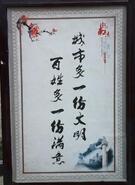 城市多一份文明
百姓多一份满意